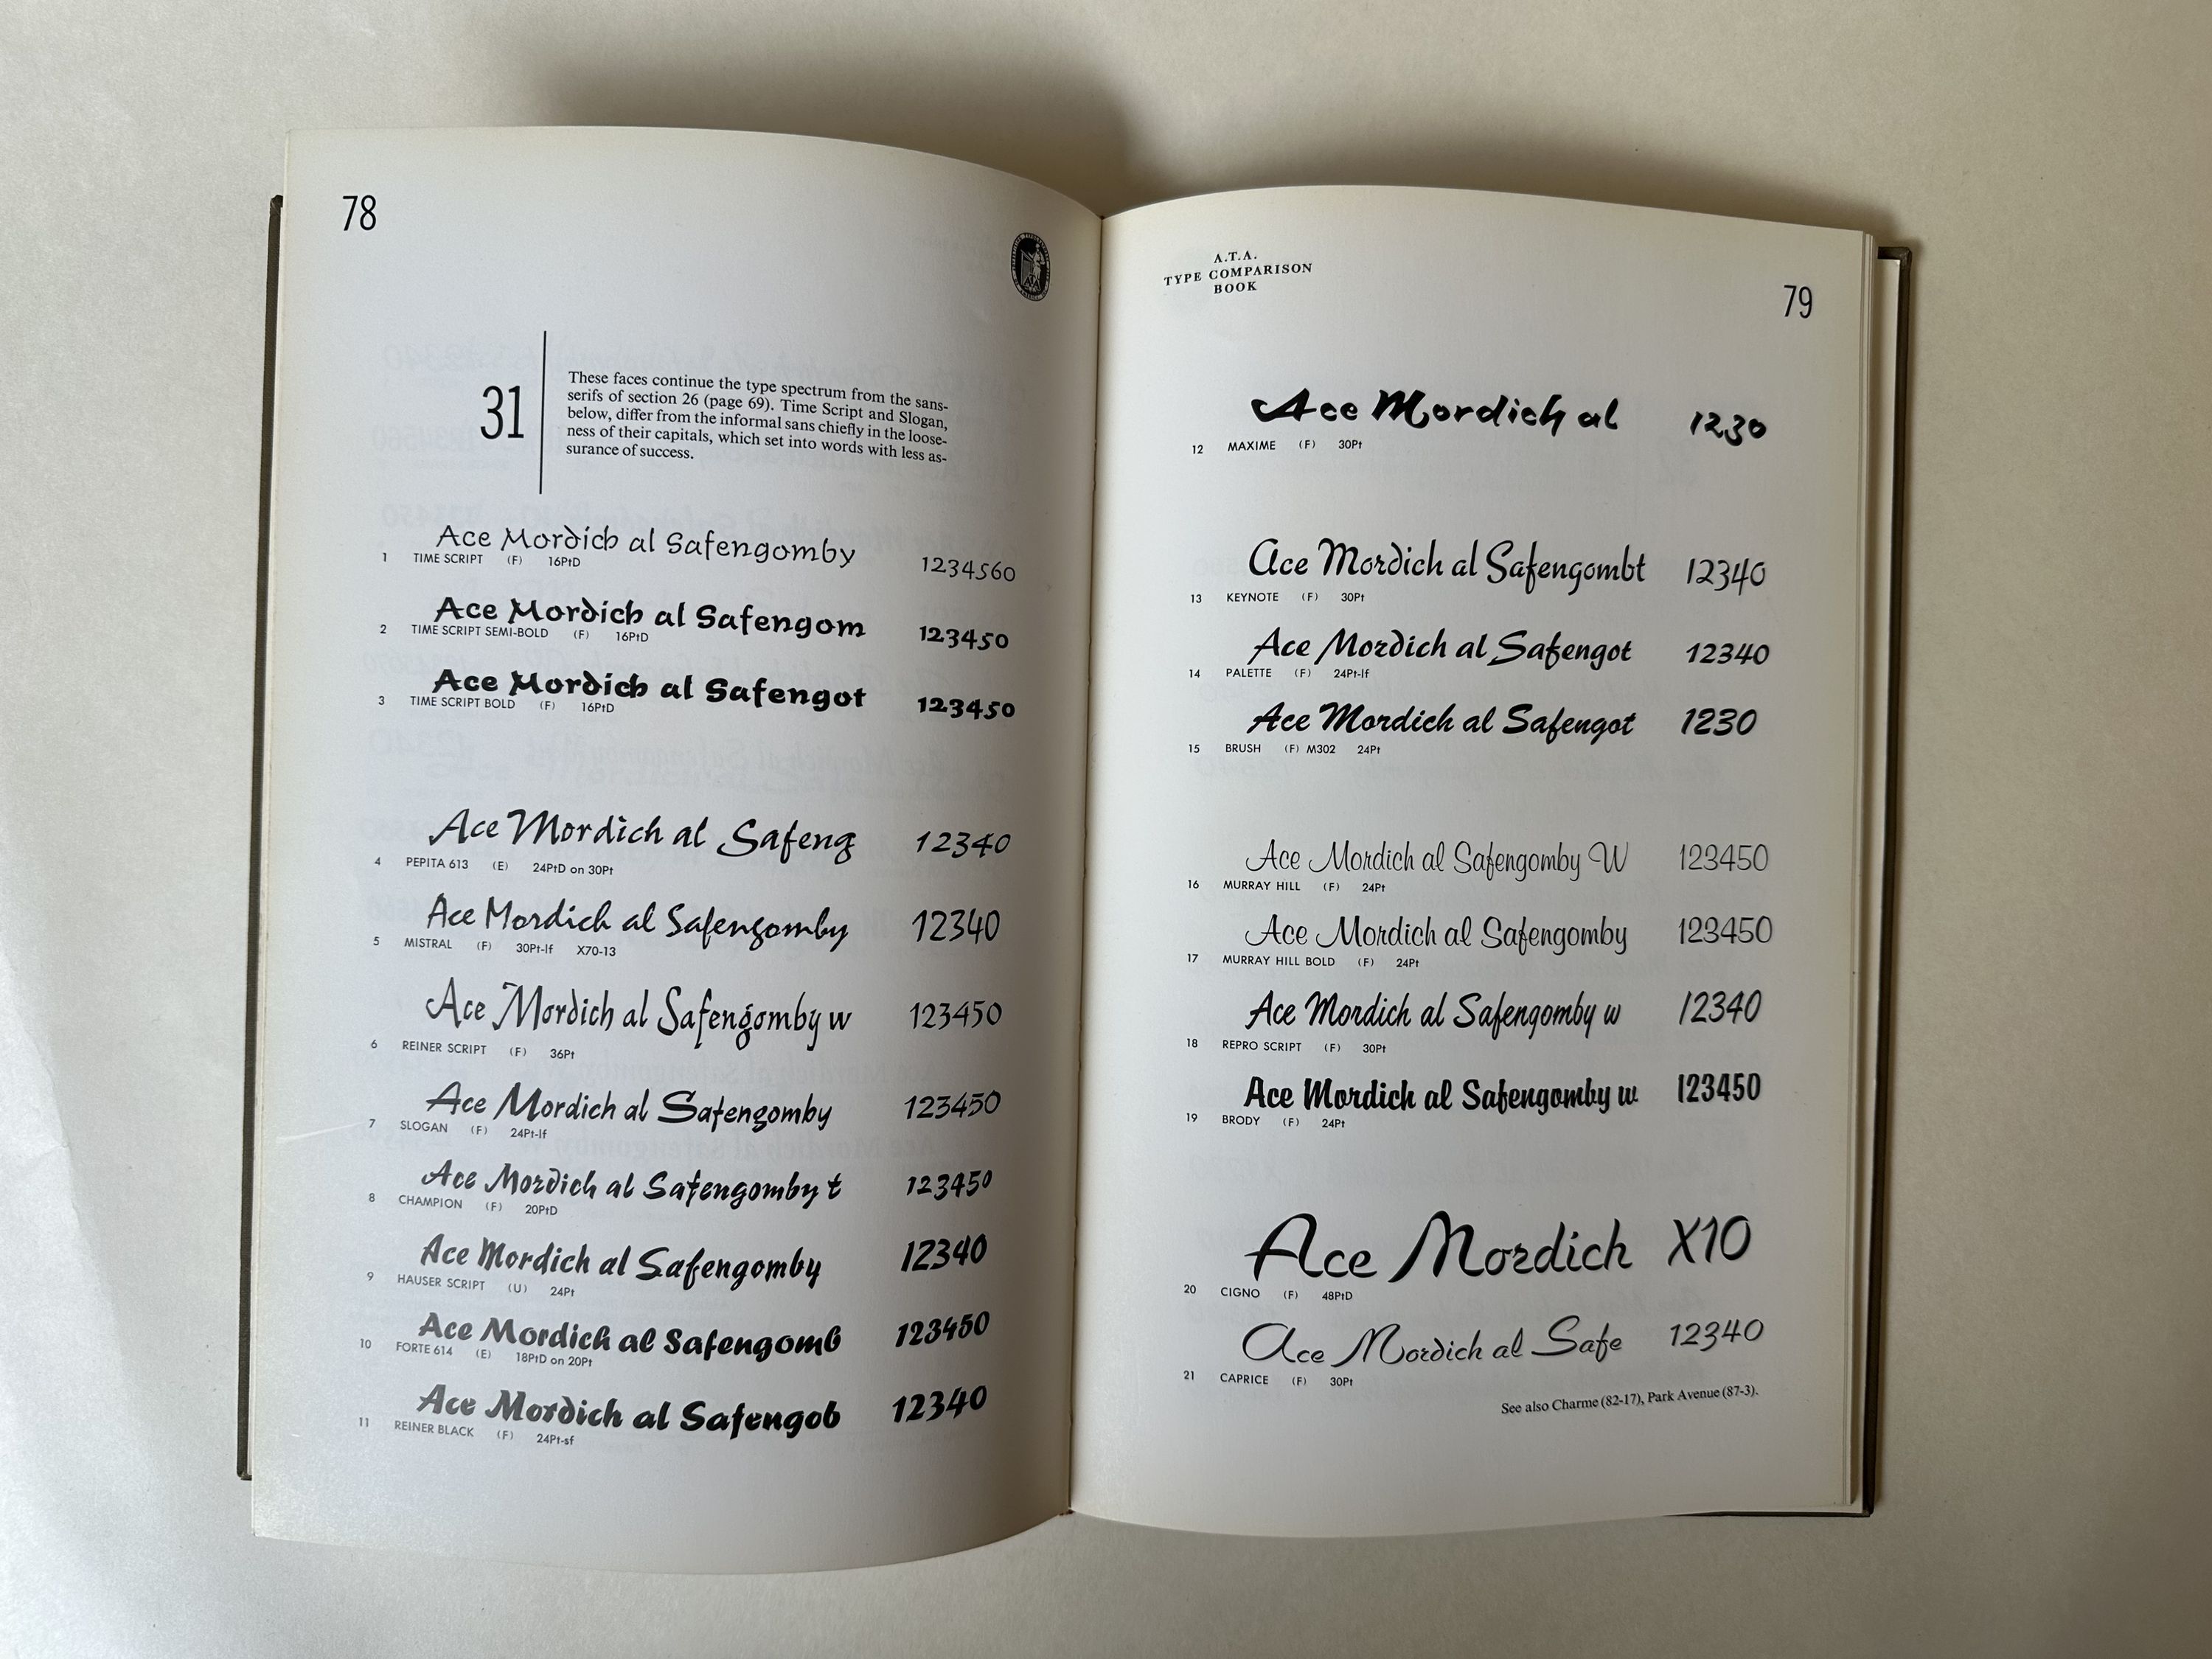 78
31
These faces continue the type spectrum from the sans-
serifs of section 26 (page 69). Time Script and Slogan,
below, differ from the informal sans chiefly in the loose-
ness of their capitals, which set into words with less as-
surance of success.
Ace Mordich al Safengomby 1234560
1 TIME SCRIPT (F) 16PtD
Ace Mordich al Safengom 123450
2 TIME SCRIPT SEMI-BOLD (F) 16PtD
Ace Mordich al Safengot 123450
3 TIME SCRIPT BOLD (F) 16PtD
Ace Mordich al Safeng 12340
4 PEPITA 613 (E) 24PtD on 30Pt
Ace Mordich al Safengomby 12340
5 MISTRAL (F) 30Pt-lf X70-13
Ace Mordich al Safengomby w 123450
6 REINER SCRIPT (F) 36Pt
Ace Mordich al Safengomby 123450
7 SLOGAN (F) 24Pt-lf
Ace Mordich al Safengomby t 123450
8 CHAMPION (F) 20PtD
Ace Mordich al Safengomby 12340
9 HAUSER SCRIPT (U) 24Pt
Ace Mordich al Safengomb 123450
10 FORTE 614 (E) 18PtD on 20Pt
Ace Mordich al Safengob 12340
11 REINER BLACK (F) 24Pt-sf
A.T.A.
TYPE COMPARISON
BOOK
79
Ace Mordich al 1230
12 MAXIME (F) 30Pt
Ace Mordich al Safengombt 12340
13 KEYNOTE (F) 30Pt
Ace Mordich al Safengot 12340
14 PALETTE (F) 24Pt-lf
Ace Mordich al Safengot 1230
15 BRUSH (F) M302 24Pt
Ace Mordich al Safengomby W 123450
16 MURRAY HILL (F) 24Pt
Ace Mordich al Safengomby 123450
17 MURRAY HILL BOLD (F) 24Pt
Ace Mordich al Safengomby w 12340
18 REPRO SCRIPT (F) 30Pt
Ace Mordich al Safengomby w 123450
19 BRODY (F) 24Pt
Ace Mordich X10
20 CIGNO (F) 48PtD
Ace Mordich al Safe 12340
21 CAPRICE (F) 30Pt
See also Charme (82-17), Park Avenue (87-3).